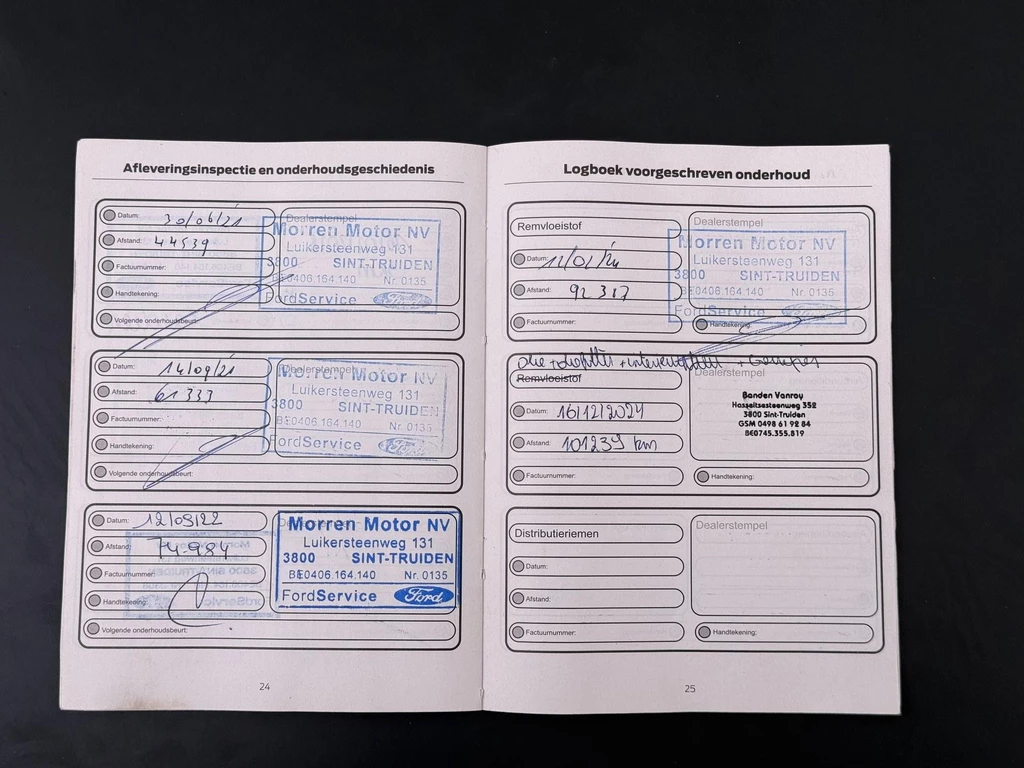 Afleveringsinspectie en onderhoudsgeschiedenis
Datum: 30/06/21
Afstand: 44539
Factuurnummer:
Handtekening:
Volgende onderhoudsbeurt:
Dealerstempel
Morren Motor NV
Luikersteenweg 131
3800 SINT-TRUIDEN
BE0406.164.140 Nr. 0135
FordService Ford
Datum: 14/09/21
Afstand: 61333
Factuurnummer:
Handtekening:
Volgende onderhoudsbeurt:
Dealerstempel
Morren Motor NV
Luikersteenweg 131
3800 SINT-TRUIDEN
BE0406.164.140 Nr. 0135
FordService Ford
Datum: 12/09/22
Afstand: 74.984
Factuurnummer:
Handtekening:
Volgende onderhoudsbeurt:
Morren Motor NV
Luikersteenweg 131
3800 SINT-TRUIDEN
BE0406.164.140 Nr. 0135
FordService Ford
24
Logboek voorgeschreven onderhoud
Remvloeistof
Datum:
Afstand: 92317
Factuurnummer:
Dealerstempel
Morren Motor NV
Luikersteenweg 131
3800 SINT-TRUIDEN
BE0406.164.140 Nr. 0135
FordService Ford
Handtekening:
Olie + luchtfilter + interieurfilter +
Remvloeistof
Datum: 16/12/2024
Afstand: 101239 km
Factuurnummer:
Dealerstempel
Banden Vanroy
Hasseltsesteenweg 352
3800 Sint-Truiden
GSM 0498 61 92 84
BE0745.355.819
Handtekening:
Distributieriemen
Datum:
Afstand:
Factuurnummer:
Dealerstempel
Handtekening:
25